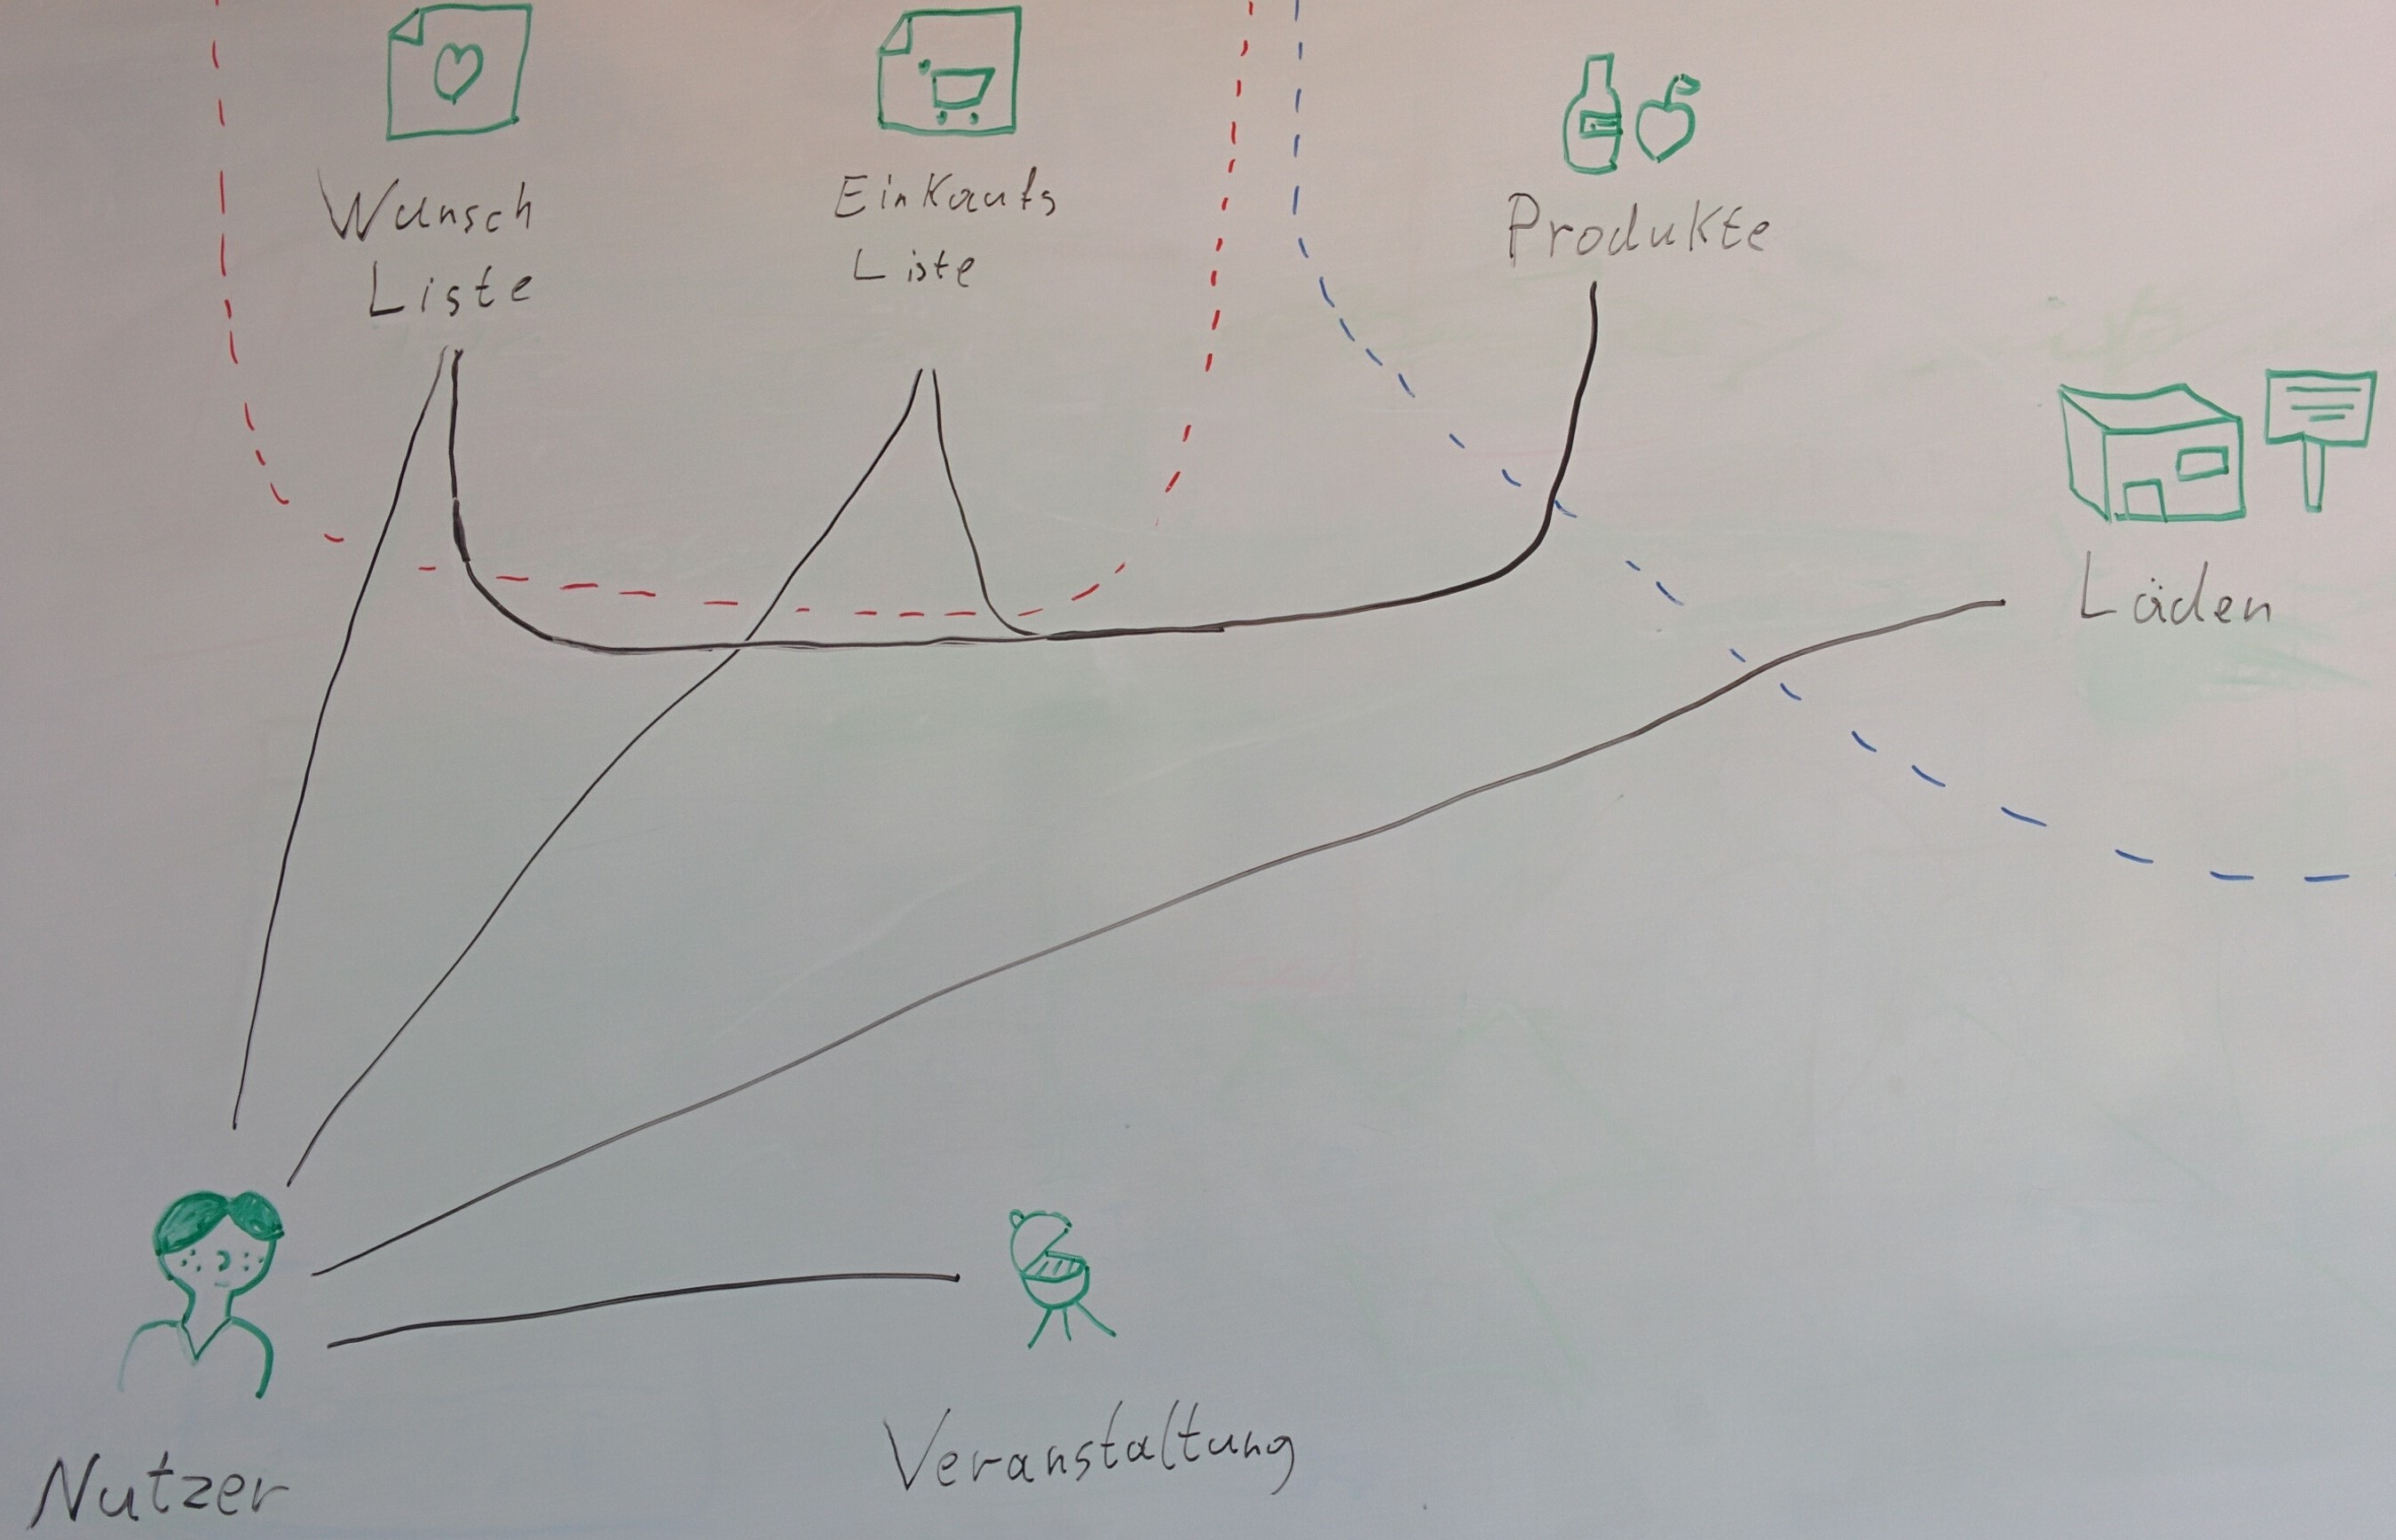 Wunsch
Liste
Einkaufs
Liste
Produkte
Läden
Nutzer
Veranstaltung